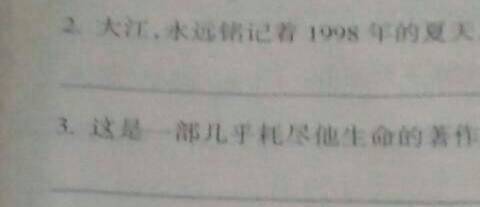 2. 大江，永远铭记着 1998 年的夏天
3. 这是一部几乎耗尽他生命的著作